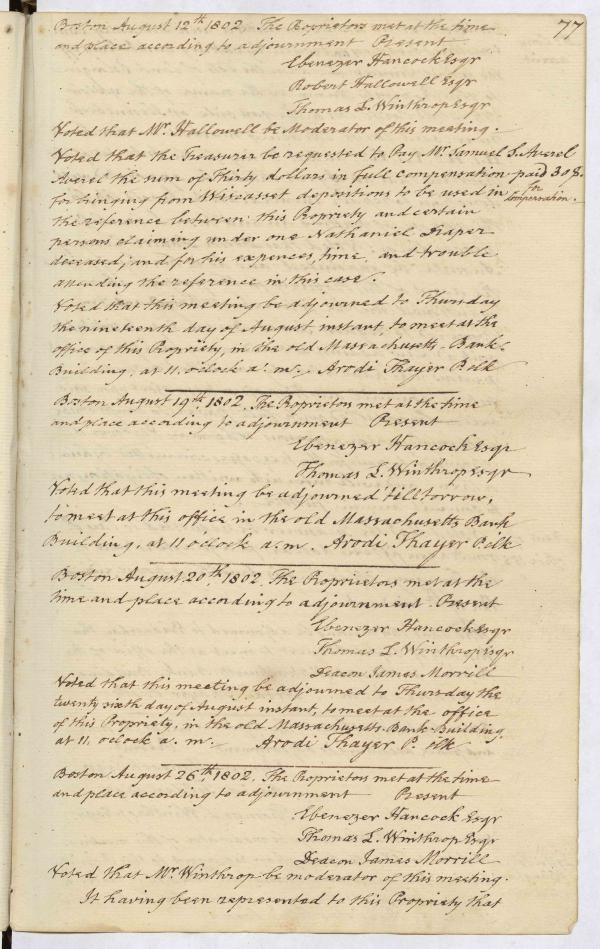 77
Boston August 12th, 1802, The Proprietors met at the time
and place according to adjournment Present
Ebenezer Hancock Esqr
Robert Hallowell Esqr
Thomas L. Winthrop Esqr
Voted that Mr. Hallowell be Moderator of this meeting.
Voted that the Treasurer be requested to Pay Mr. Samuel S. Averel
Averel the sum of Thirty dollars in full compensation paid 30$.
for bringing from Wiscasset depositions to be used in in compensation.
the reference between this Propriety and certain
persons claiming under one Nathaniel Draper
deceased; and for his expences, time, and trouble
attending the reference in this case.
Voted that this meeting be adjourned to Thursday
the nineteenth day of August instant, to meet at the
office of this Propriety, in the old Massachusetts Bank
Building, at 11, oclock a. m. Arodi Thayer P clk
Boston August 19th, 1802, The Proprietors met at the time
and place according to adjournment Present
Ebenezer Hancock Esqr
Thomas L. Winthrop Esqr
Voted that this meeting be adjourned 'till torrow,
to meet at this office in the old Massachusetts Bank
Building, at 11 o'clock a. m. Arodi Thayer P. clk
Boston August 20th 1802, The Proprietors met at the
time and place according to adjournment Present
Ebenezer Hancock Esqr
Thomas L. Winthrop Esqr
Deacon James Morrill
Voted that this meeting be adjourned to Thursday the
twenty sixth day of August instant, to meet at the office
of this Propriety, in the old Massachusetts Bank Building
at 11, oclock a. m. Arodi Thayer P. clk
Boston August 26th, 1802, The Proprietors met at the time
and place according to adjournment Present
Ebenezer Hancock Esqr
Thomas L. Winthrop Esqr
Deacon James Morrill
Voted that Mr. Winthrop be moderator of this meeting.
It having been represented to this Propriety that